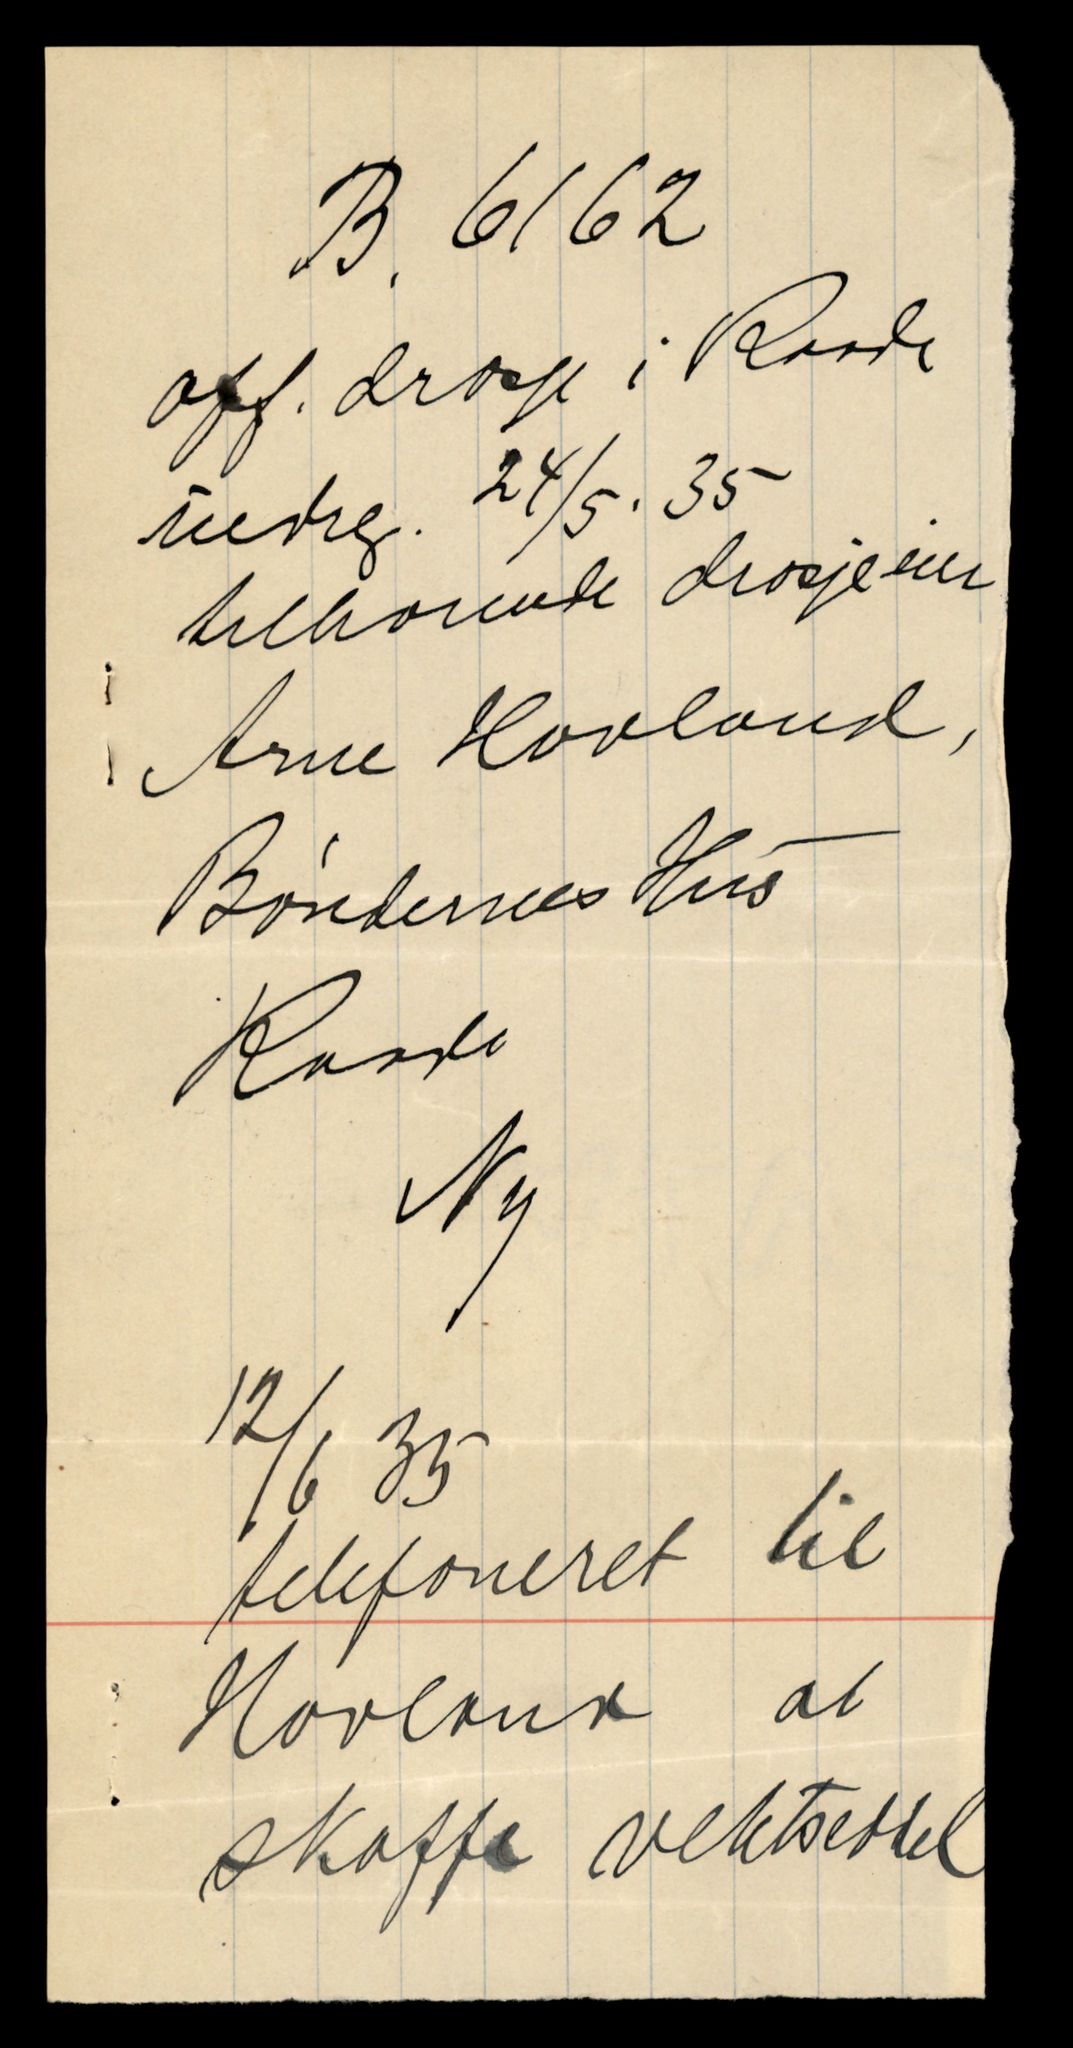 B. 6162
off. drosje i Raade
indreg. 24/5. 35
tilhørende drosjeeier
Arne Hovland,
Bøndernes Hus
Raade
Ny
12/6 35
telefoneret til
Hovland at
skaffe vektseddel